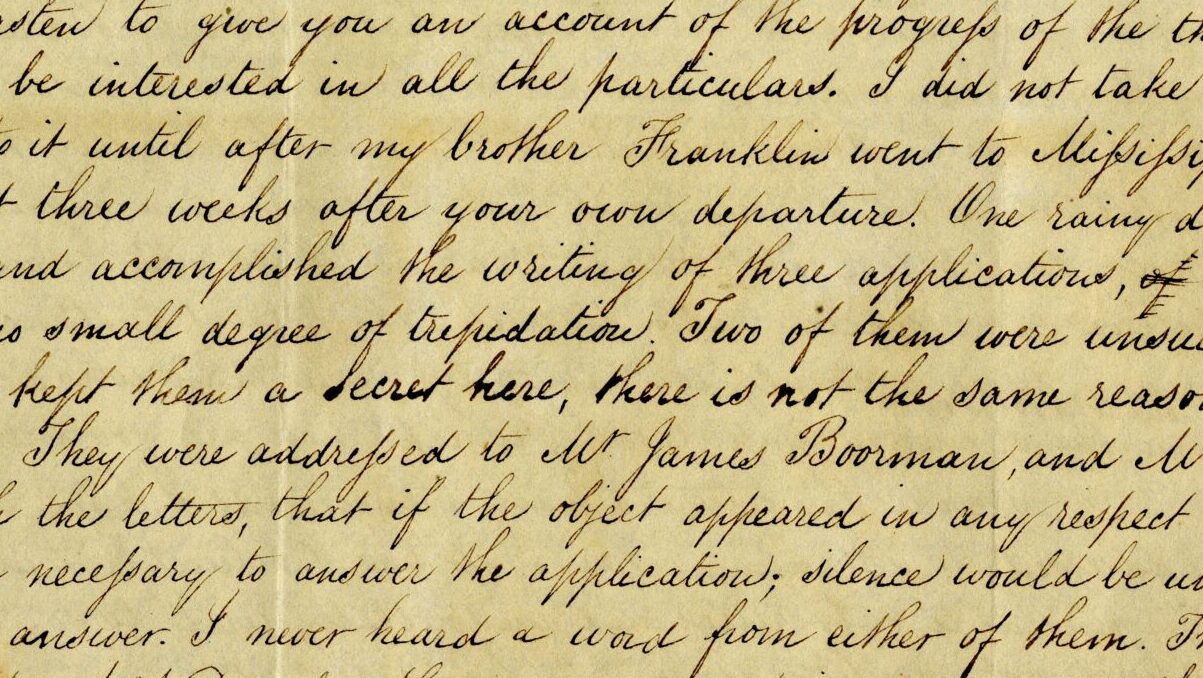 to give you an account of the progreſs of the
be interested in all the particulars. I did not take
it until after my brother Franklin went to Miſsiſsi
three weeks after your own departure. One rainy d
and accomplished the writing of three applications, of
no small degree of trepidation. Two of them were unsuc
kept them a secret here, there is not the same reaso
They were addreſsed to Mr James Boorman, and M
the letters, that if the object appeared in any respect
neceſsary to answer the application; silence would be un
answer. I never heard a word from either of them. Th